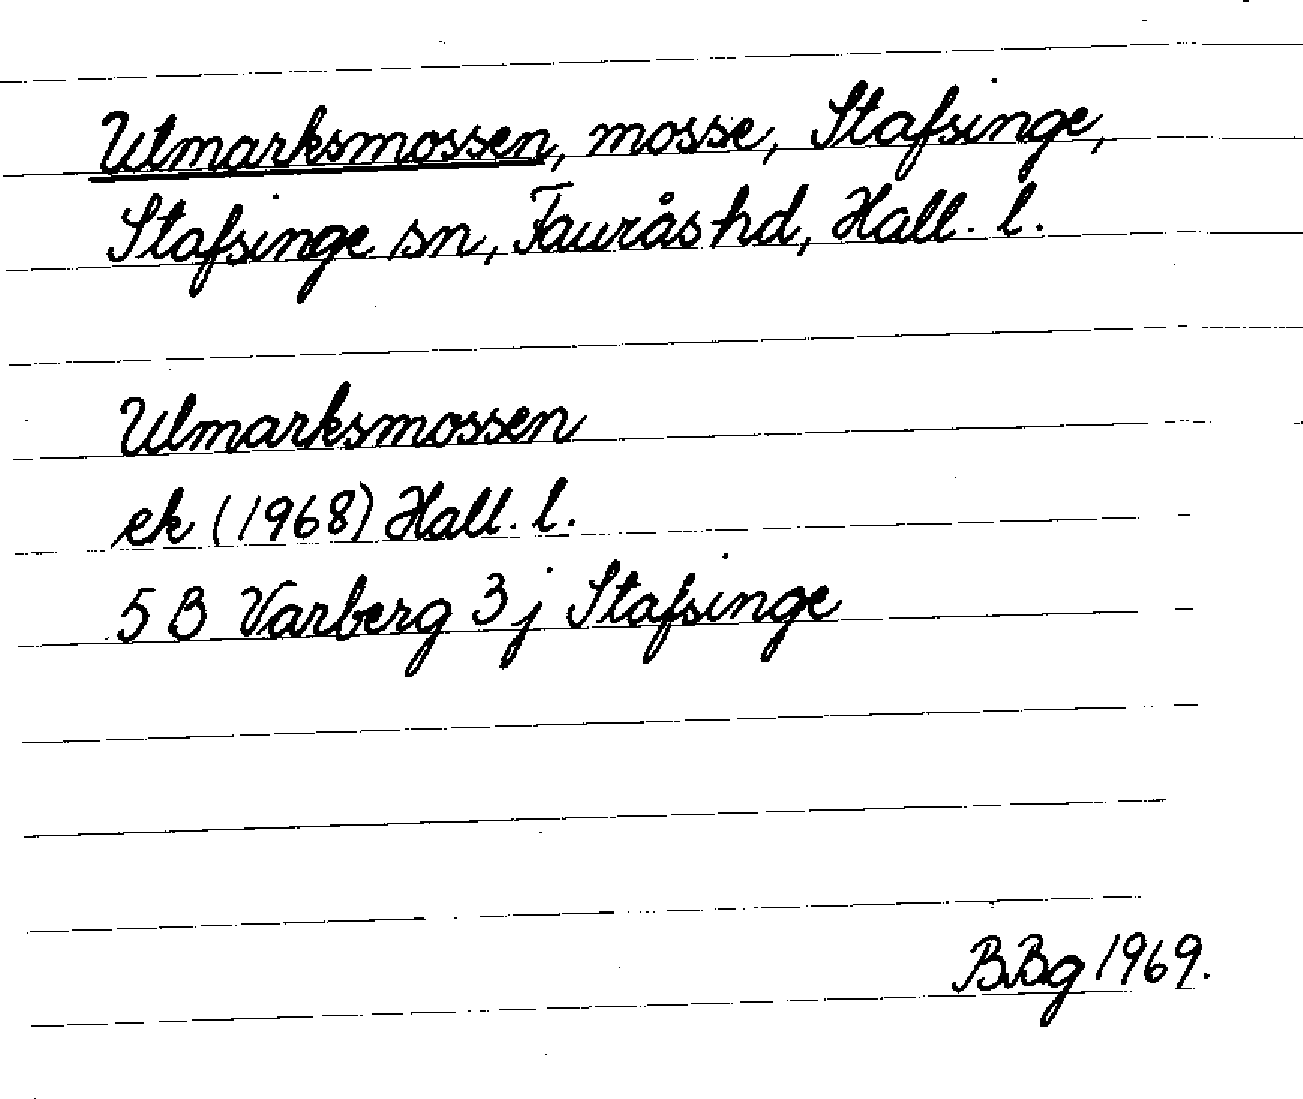 Utmarksmossen, mosse, Stafsinge,
Stafsinge sn, Faurås hd, Hall. l.
Ulmarksmossen
ek (1968) Hall. l.
5 B Varberg 3 j Stafsinge
BBg 1969.